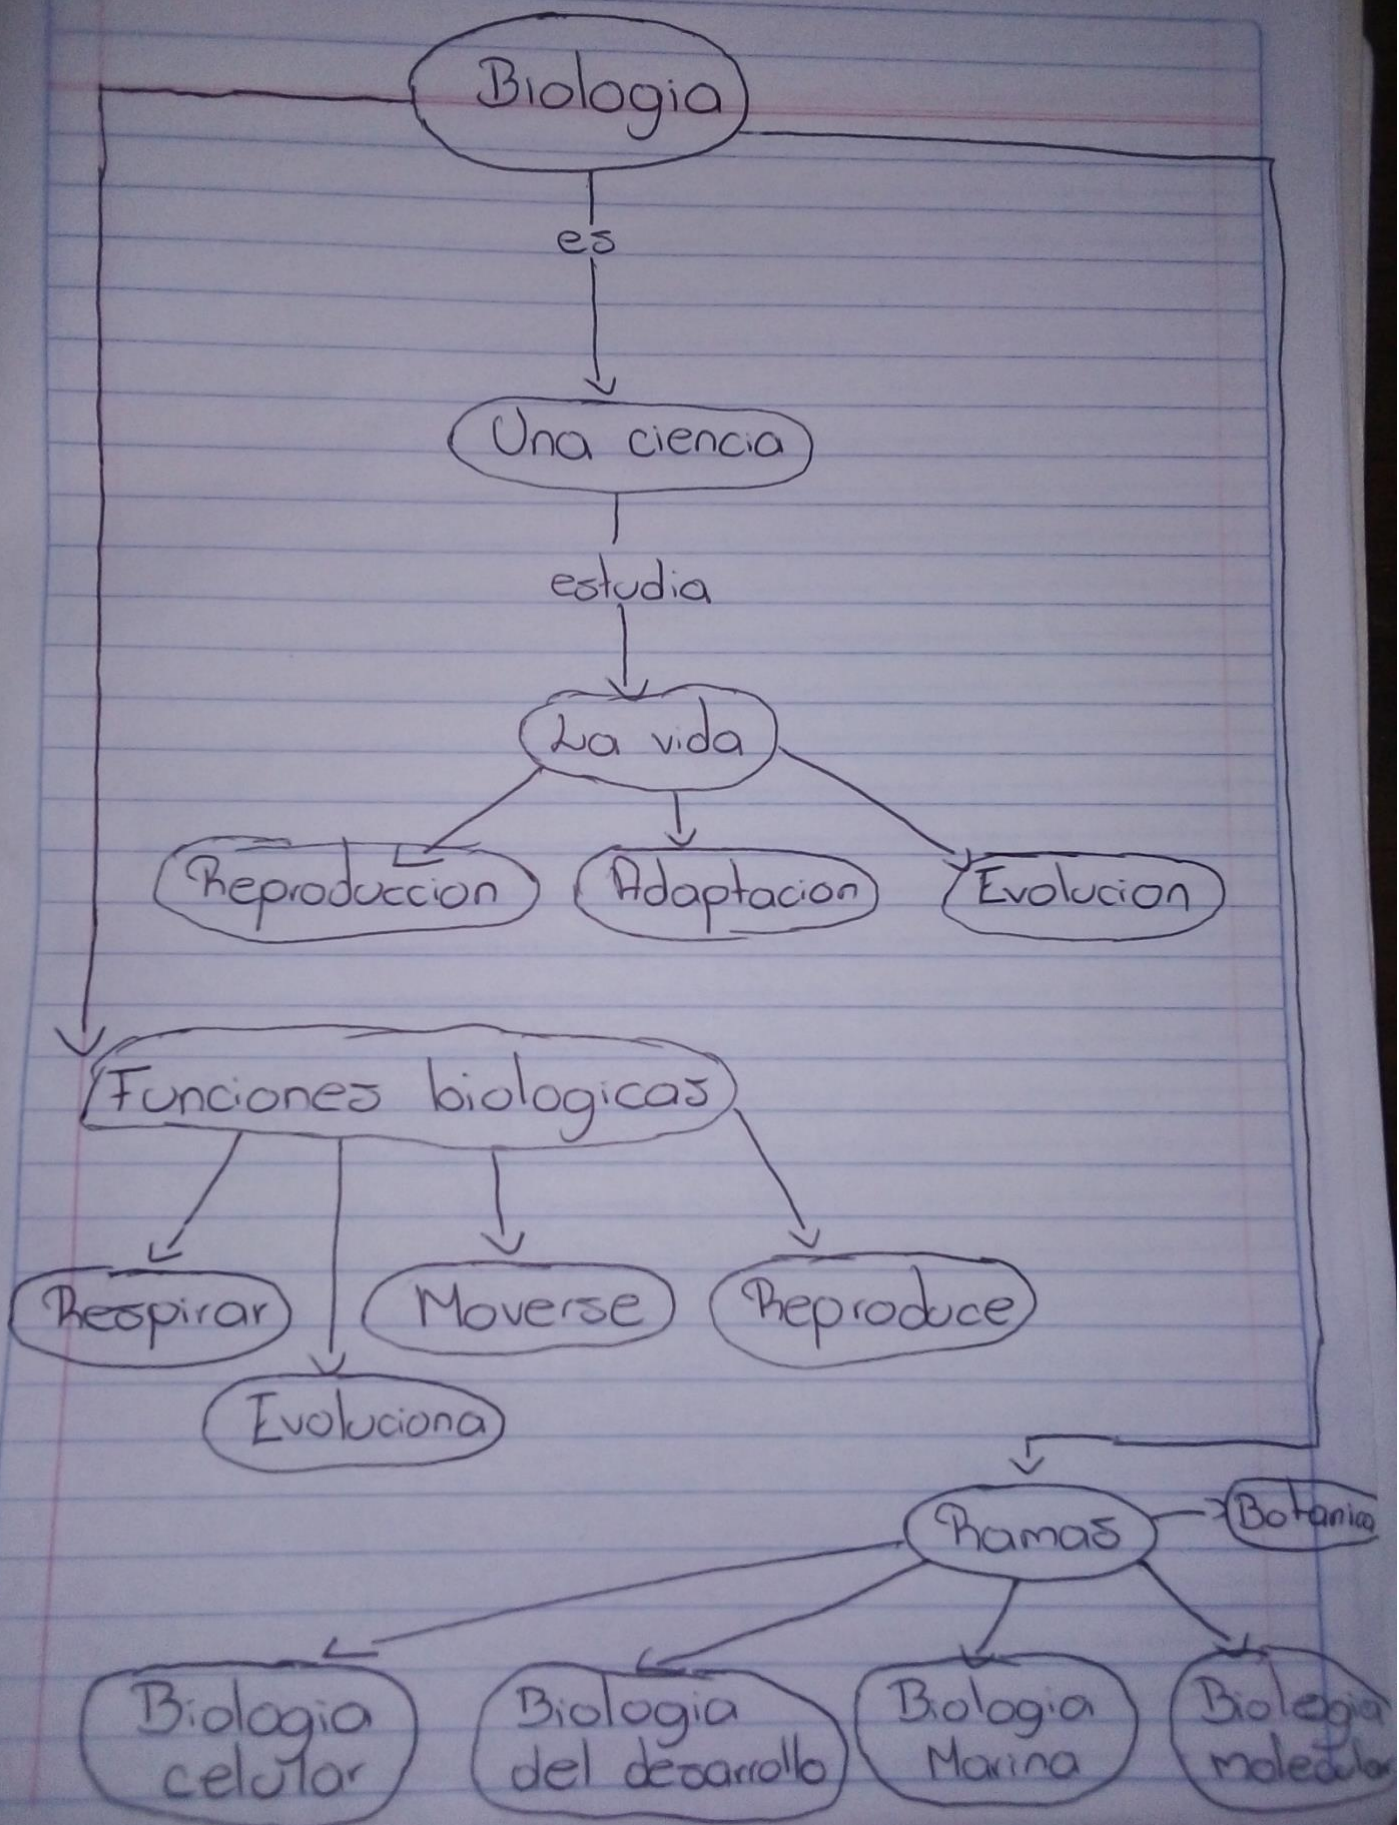 Biologia
es
Una ciencia
estudia
La vida
Reproduccion
Adaptacion
Evolucion
Funciones biologicas
Respirar
Moverse
Reproduce
Evoluciona
Ramas
Botanica
Biologia
celular
Biologia
del desarrollo
Biologia
Marina
Biologia
molecular